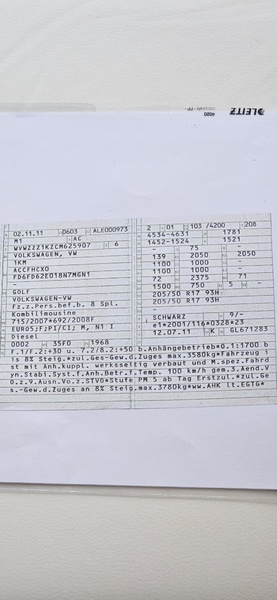 LEITZ
4080
02.11.11 0603 ALE000973
M1 AC
WVWZZZ1KZCM625907 6
VOLKSWAGEN, VW
1KM
ACCFHCX0
FD6FD62ED18N7MGN1
GOLF
VOLKSWAGEN-VW
Fz.z.Pers.bef.b. 8 Spl.
Kombilimousine
715/2007*692/2008F
EURO5;F;PI/CI; M, N1 I
Diesel
0002 35F0 1968
2 01 103 /4200 208
4534-4631 1781
1452-1524 1521
- 75 -
139 2050 2050
1100 1000 -
1100 1000 -
72 2375 71
1500 750 5 -
205/50 R17 93H
205/50 R17 93H
-
-
SCHWARZ 9/-
e1*2001/116*0328*23
12.07.11 K GL671283
F.1/F.2:+30 u. 7.2/8.2:+50 b.Anhängebetrieb*O.1:1700 b
is 8% Steig.*zul.Ges-Gew.d.Zuges max.3580kg*Fahrzeug i
st mit Anh.kuppl. werksseitig verbaut und M.spez.Fahrd
yn.Stabi.Syst.f.Anh.Betr.f.Temp. 100 km/h gem.3.Aend.V
O.z.9.Ausn.Vo.z.STVO*Stufe PM 5 ab Tag Erstzul.*zul.Ge
s.-Gew.d.Zuges an 8% Steig.max.3780kg*ww.AHK lt.EGTG*